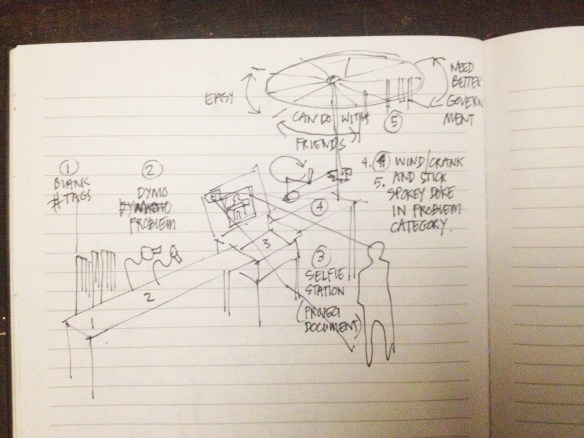 EASY
NEED
BETTER
GOVERN
MENT
CAN DO WITH
FRIENDS
5
1
BLANK
# TAGS
2
DYMO
PROBLEM
4. 4 WIND/CRANK
5. AND STICK
SPOKEY DOKE
IN PROBLEM
CATEGORY.
4
3
2
1
3
SELFIE
STATION
(PROJECT
DOCUMENT)